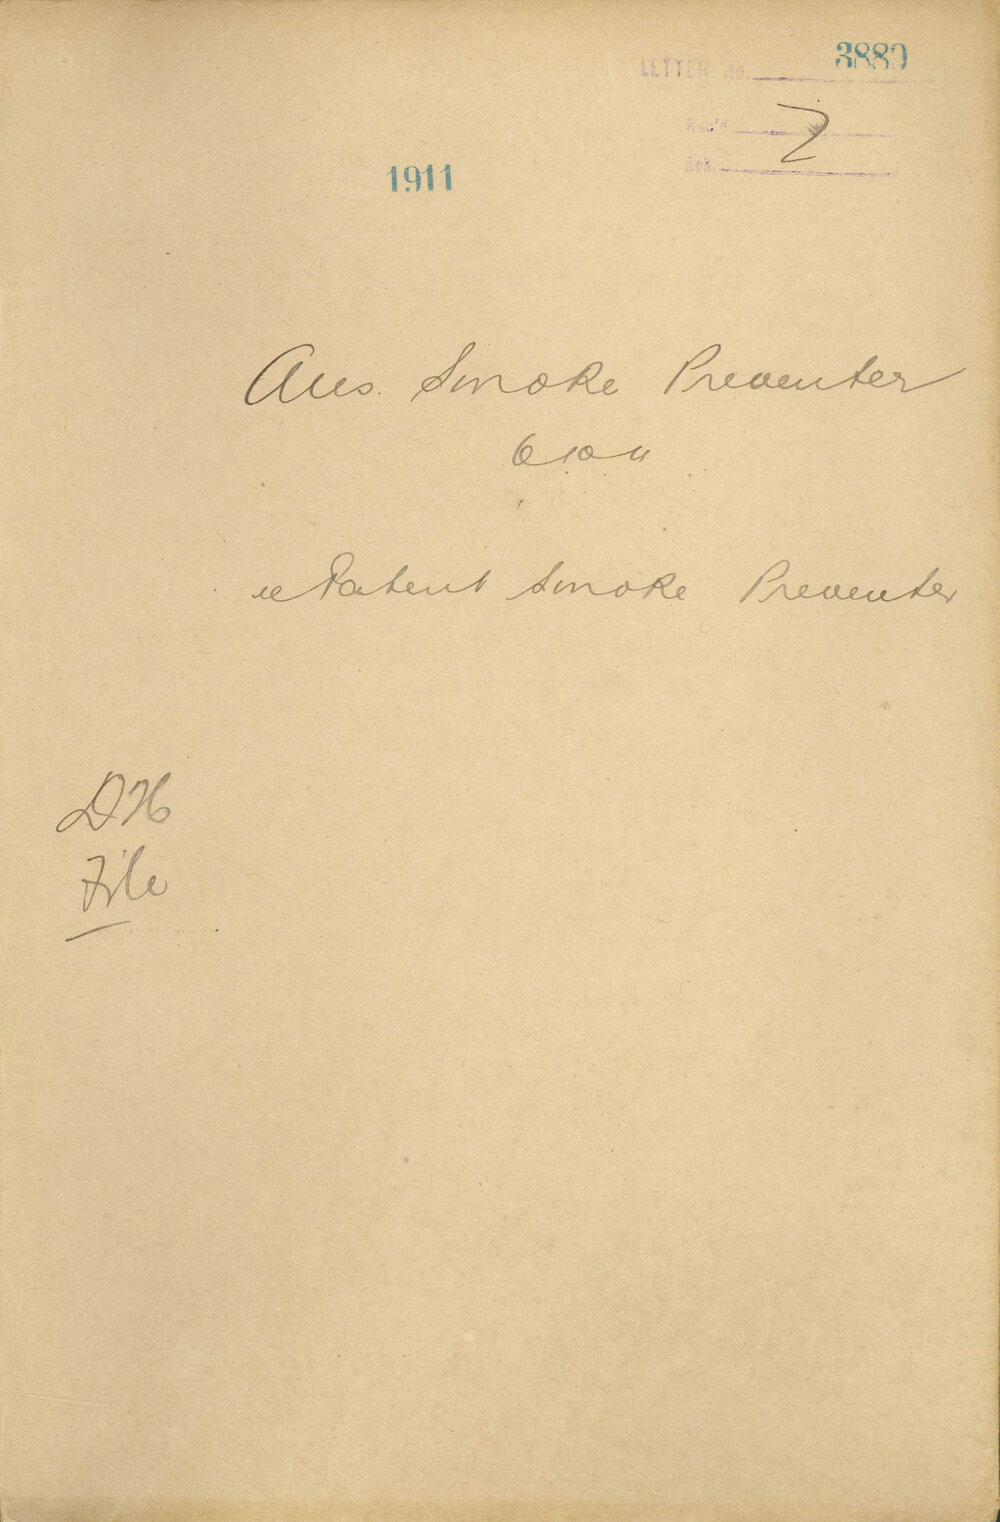 LETTER No. 3889
Rec'd
Ack.
1911
Aus. Smoke Preventer
re Patent Smoke Preventer
DH
File